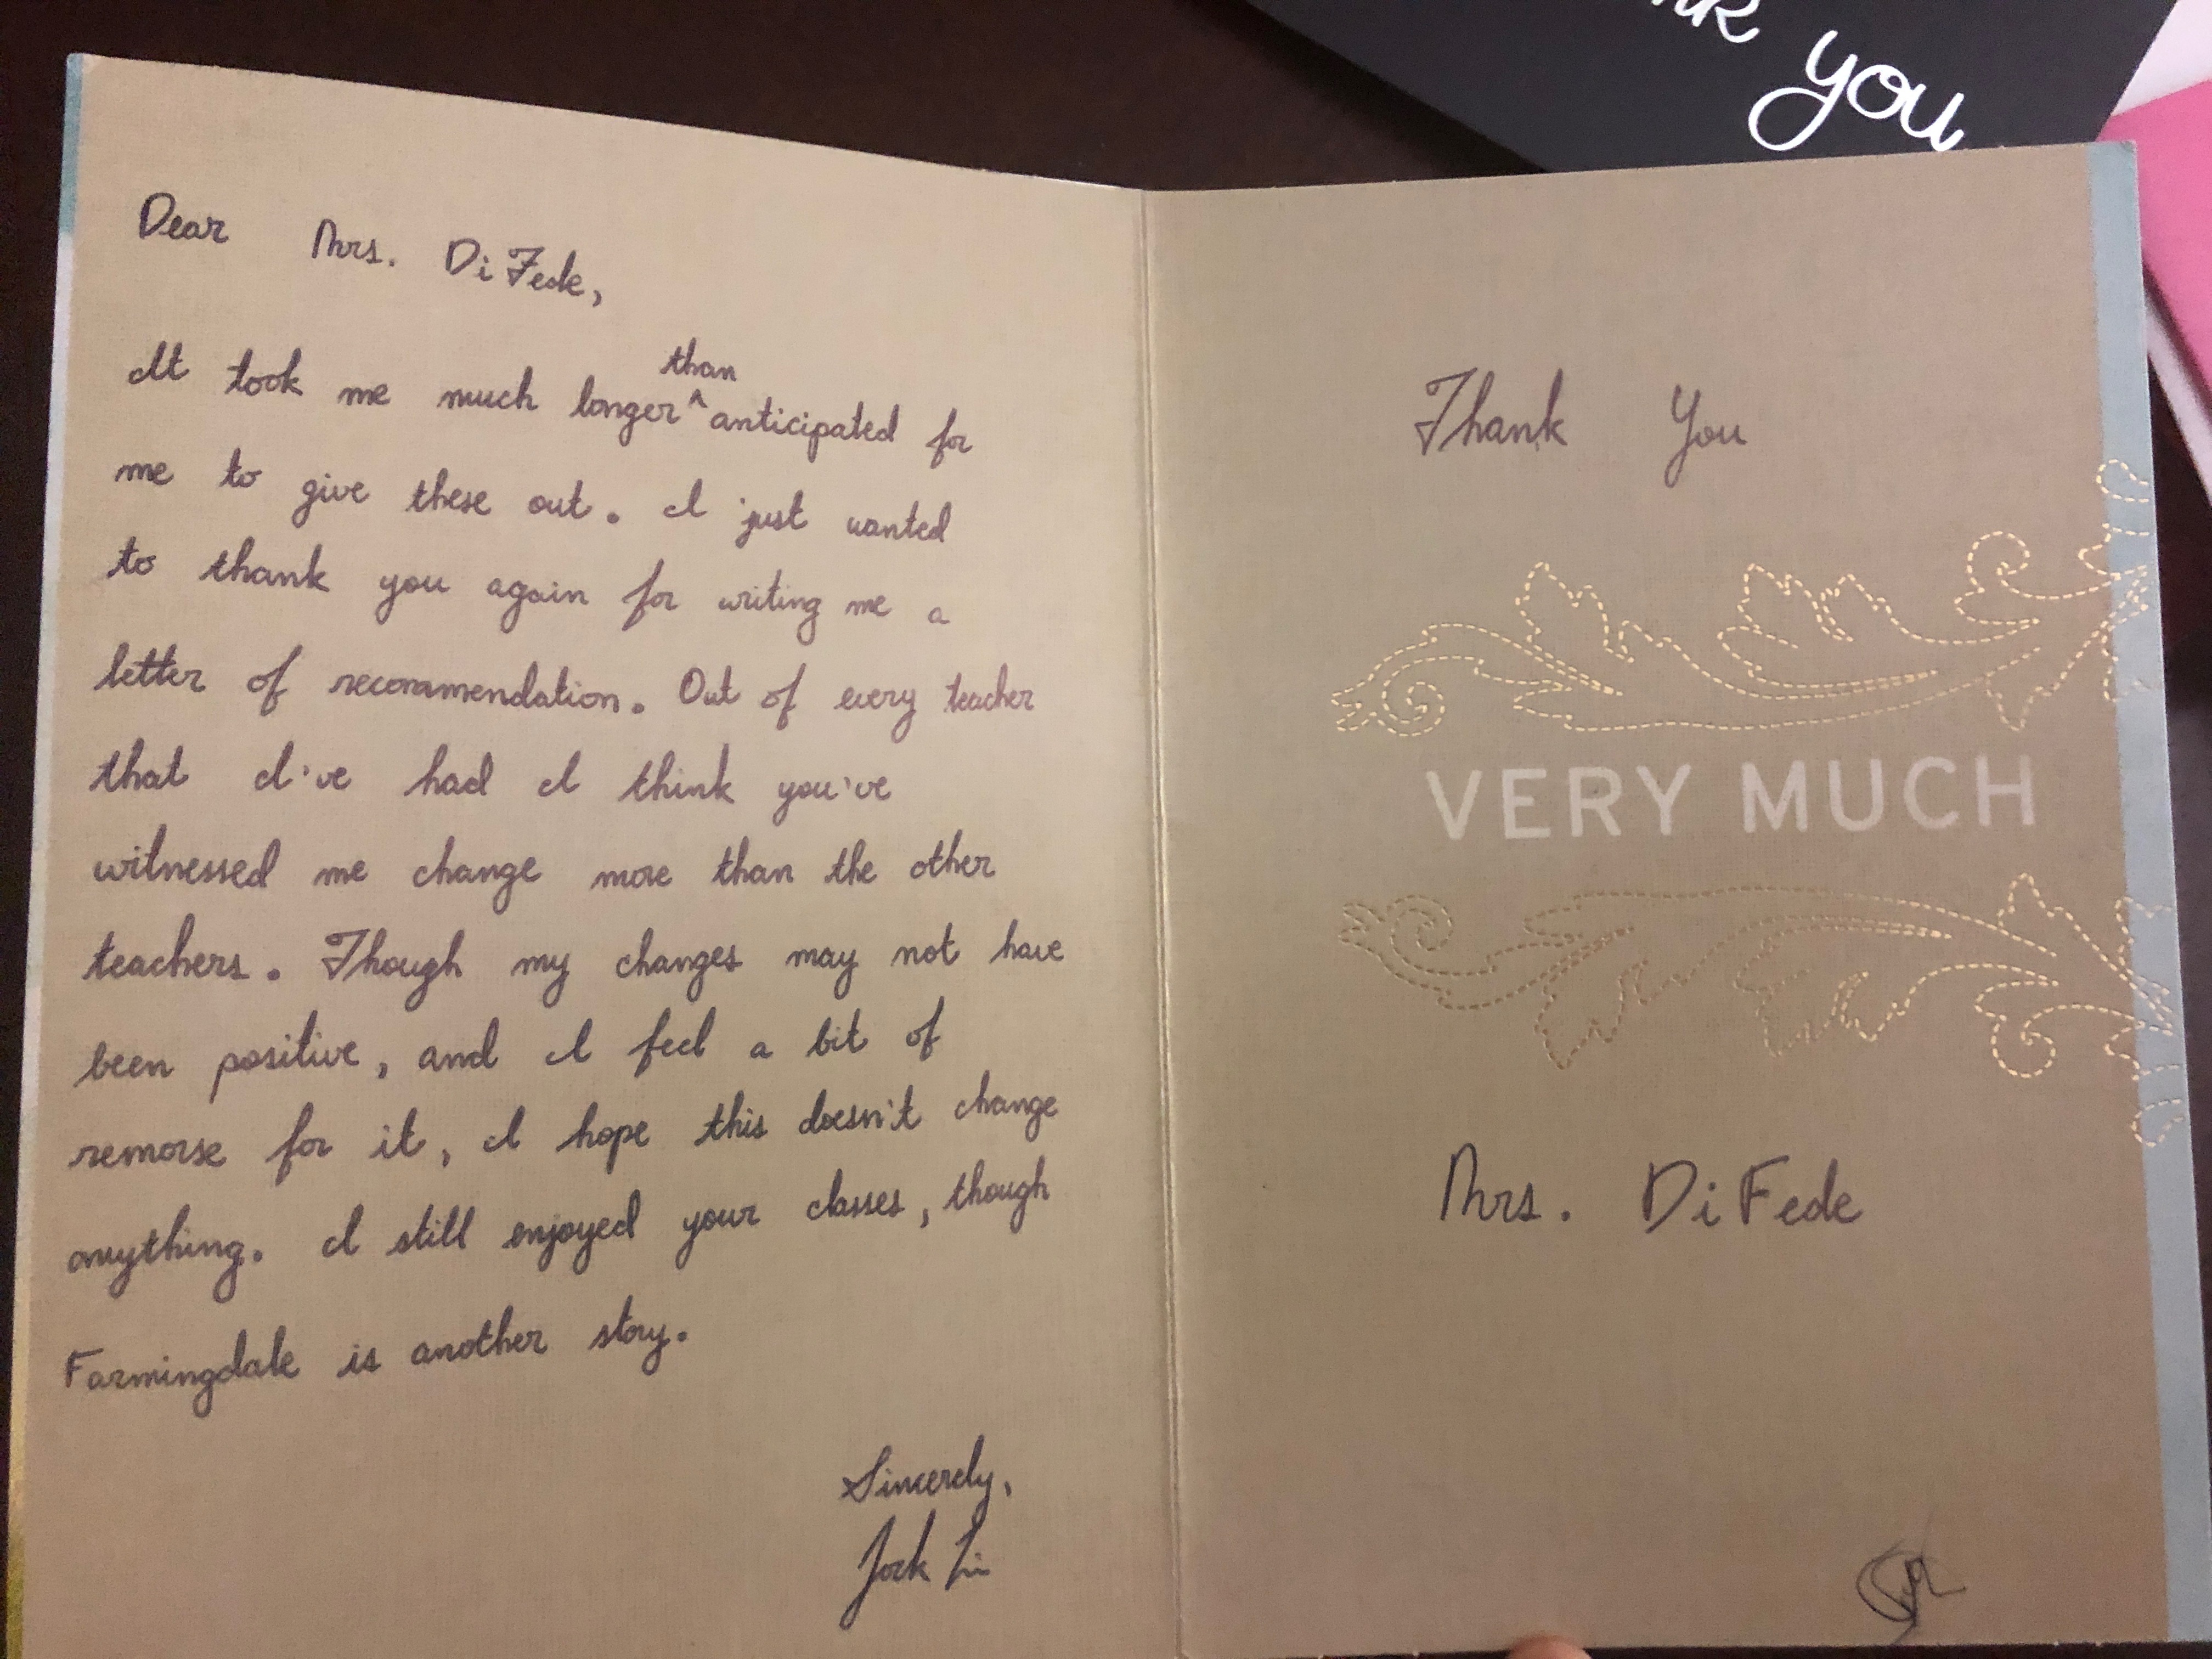 you
Dear Mrs. DiFede,
It took me much longer ^than anticipated for
me to give these out. I just wanted
to thank you again for writing me a
letter of recommendation. Out of every teacher
that I've had I think you've
witnessed me change more than the other
teachers. Though my changes may not have
been positive, and I feel a bit of
remorse for it, I hope this doesn't change
anything. I still enjoyed your classes, though
Farmingdale is another story.
Sincerely,
Jork Li
Thank You
VERY MUCH
Mrs. DiFede